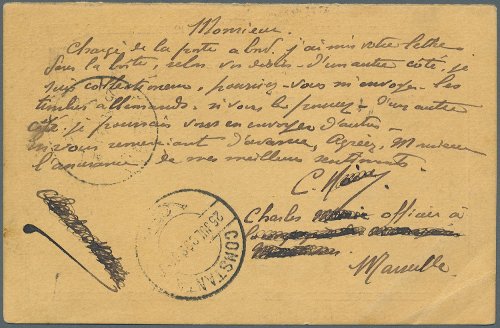 Monsieur.
Chargé de la poste a bord, j'ai mis votre lettre
dans la boîte, selon vos désirs - d'un autre côté, je
suis collectionneur, pourriez-vous m'envoyer des
timbres allemands. si vous le pouvez - d'un autre
côté, je pourrais vous en envoyer d'autres -
En vous remerciant d'avance, Agréez, Monsieur
l'assurance de mes meilleurs sentiments
C.
Charles officier à
Marseille
CONSTANT